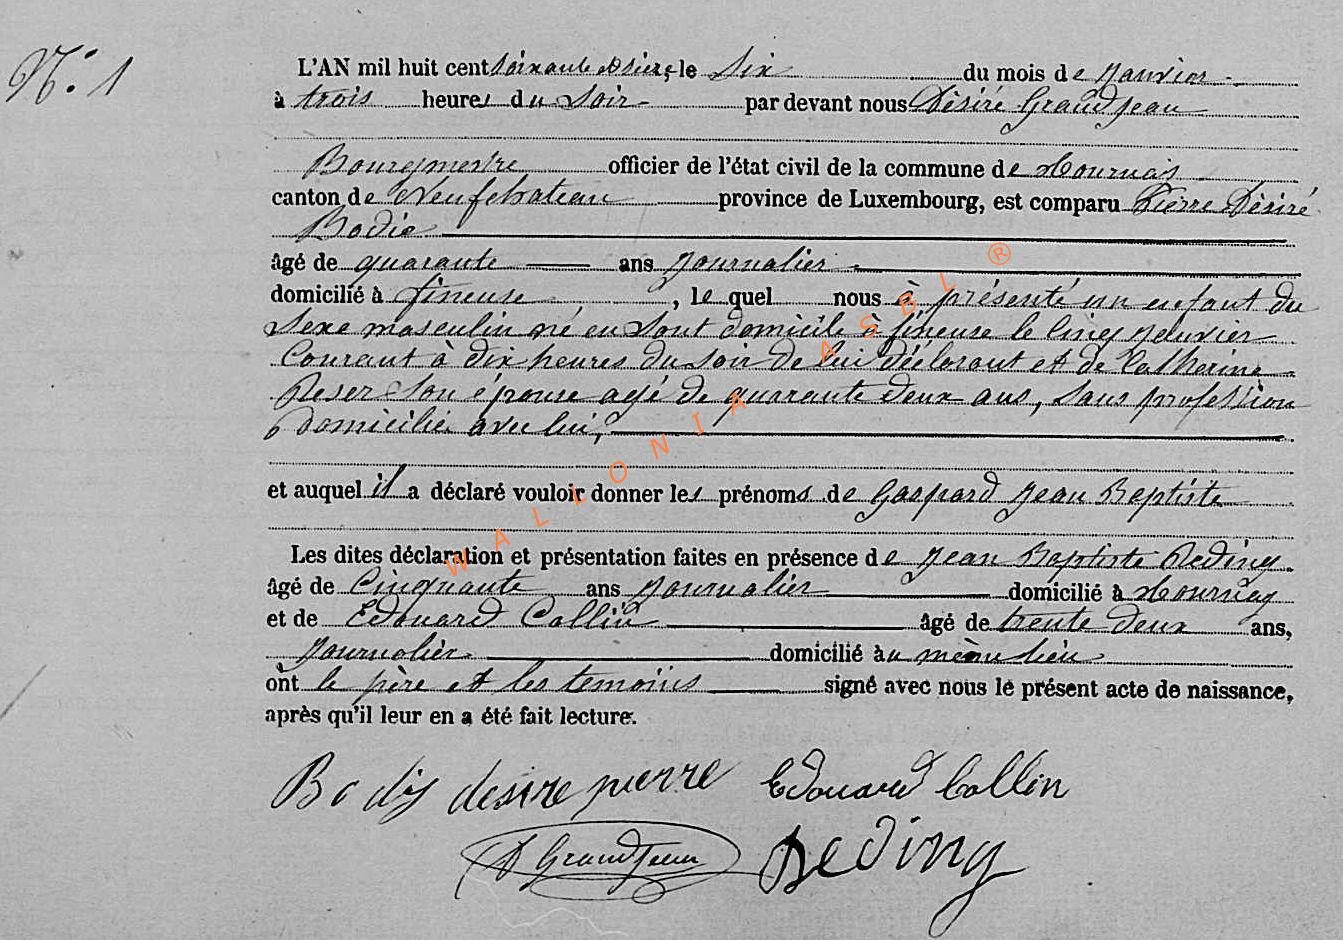 N.o 1
L'AN mil huit cent soixante Seize, le Six du mois de Janvier
à trois heures du Soir par devant nous Désiré Grandjean
Bourgmestre officier de l'état civil de la commune de Tournay
canton de Neufchateau province de Luxembourg, est comparu Pierre Désiré
Bodié
âgé de quarante ans Journalier
domicilié à fineuse, le quel nous à présenté un enfant du
Sexe masculin né en Sont domicile à fineuse le Cinq Janvier
Courant à dix heures du Soir de lui déclarant et de Catherine
Reser Son épouse agé de quarante deux ans, Sans profession
domiciliée avec lui,
et auquel il a déclaré vouloir donner les prénoms de Gaspard Jean Baptiste
Les dites déclaration et présentation faites en présence de Jean Baptiste Reding
âgé de Cinquante ans Journalier domicilié à Tournay
et de Edouard Collin âgé de trente deux ans,
Journalier domicilié au même lieu
ont le père et les temoins signé avec nous le présent acte de naissance,
après qu'il leur en a été fait lecture.
Bodij desire pierre Edouard Collin
D Grandjean Reding
WALLONIA ASBL ®